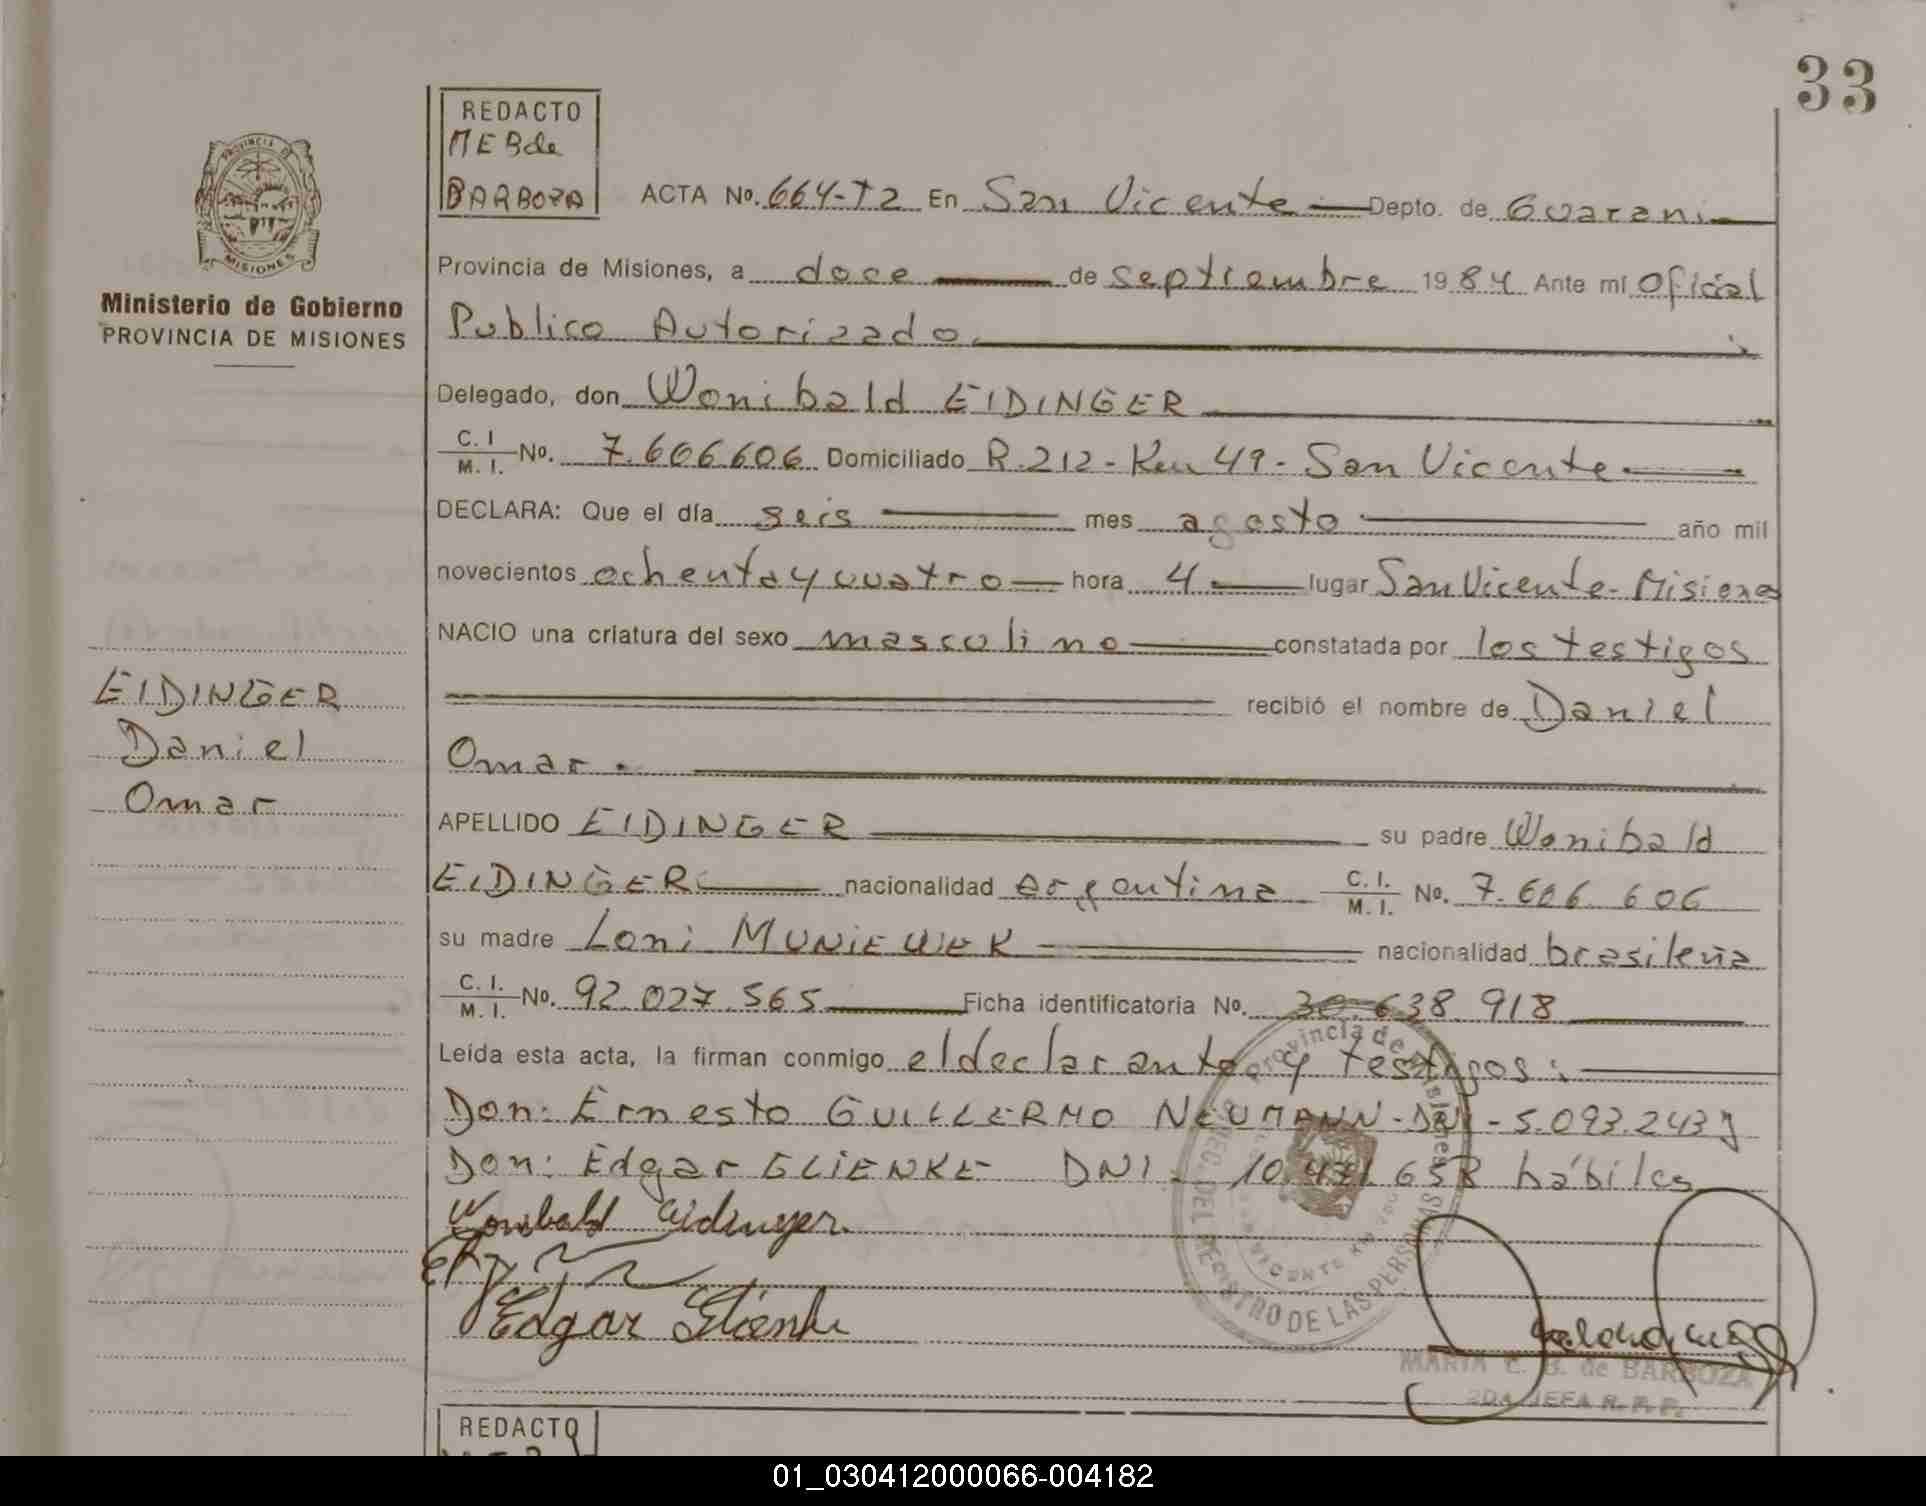 33
REDACTO
MEB de
BARBOZA
ACTA No. 664-T2 En San Vicente Depto. de Guarani
PROVINCIA DE
MISIONES
Ministerio de Gobierno
PROVINCIA DE MISIONES
Provincia de Misiones, a doce de septiembre 1984 Ante mí Oficial
Publico Autorizado
Delegado, don Wonibald EIDINGER
C. I / M. I. No. 7.606.606 Domiciliado R.212-Km 49-San Vicente
DECLARA: Que el día seis mes agosto año mil
novecientos ochenta y cuatro hora 4 lugar San Vicente-Misiones
NACIO una criatura del sexo masculino constatada por los testigos
recibió el nombre de Daniel
Omar.
EIDINGER
Daniel
Omar
APELLIDO EIDINGER su padre Wonibald
EIDINGER nacionalidad argentina C. I. / M. I. No. 7.606.606
su madre Loni MUNIEWEK nacionalidad brasileña
C. I. / M. I. No. 92.027.565 Ficha identificatoria No. 30.638.918
Leída esta acta, la firman conmigo el declarante y testigos:
Don: Ernesto GUILLERMO NEUMANN-DNI-5.093.243 y
Don: Edgar GLIENKE DNI. 10.471.658 hábiles
Wonibald Eidinger.
Edgar Glienke
Provincia de Misiones
DEL REGISTRO DE LAS PERSONAS
MARIA E. B. de BARBOZA
2DA JEFA R. P. P.
REDACTO
01_030412000066-004182